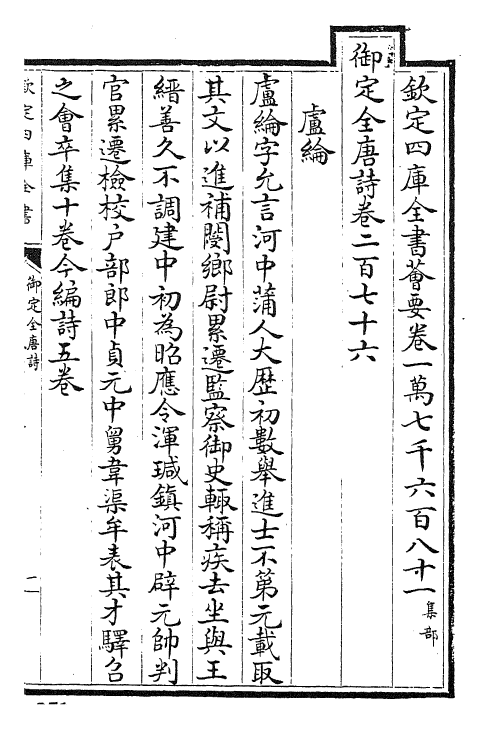 欽定四庫全書薈要卷一萬七千六百八十一 集部
御定全唐詩卷二百七十六
盧綸
盧綸字允言河中蒲人大歴初數舉進士不第元載取
其文以進補閿鄉尉累遷監察御史輙稱疾去坐與王
縉善久不調建中初為昭應令渾瑊鎮河中辟元帥判
官累遷檢校户部郎中貞元中舅韋渠牟表其才驛召
之會卒集十卷今編詩五卷
欽定四庫全書
御定全唐詩